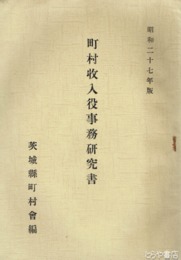 昭和二十七年版
町村收入役事務研究書
茨城縣町村會編